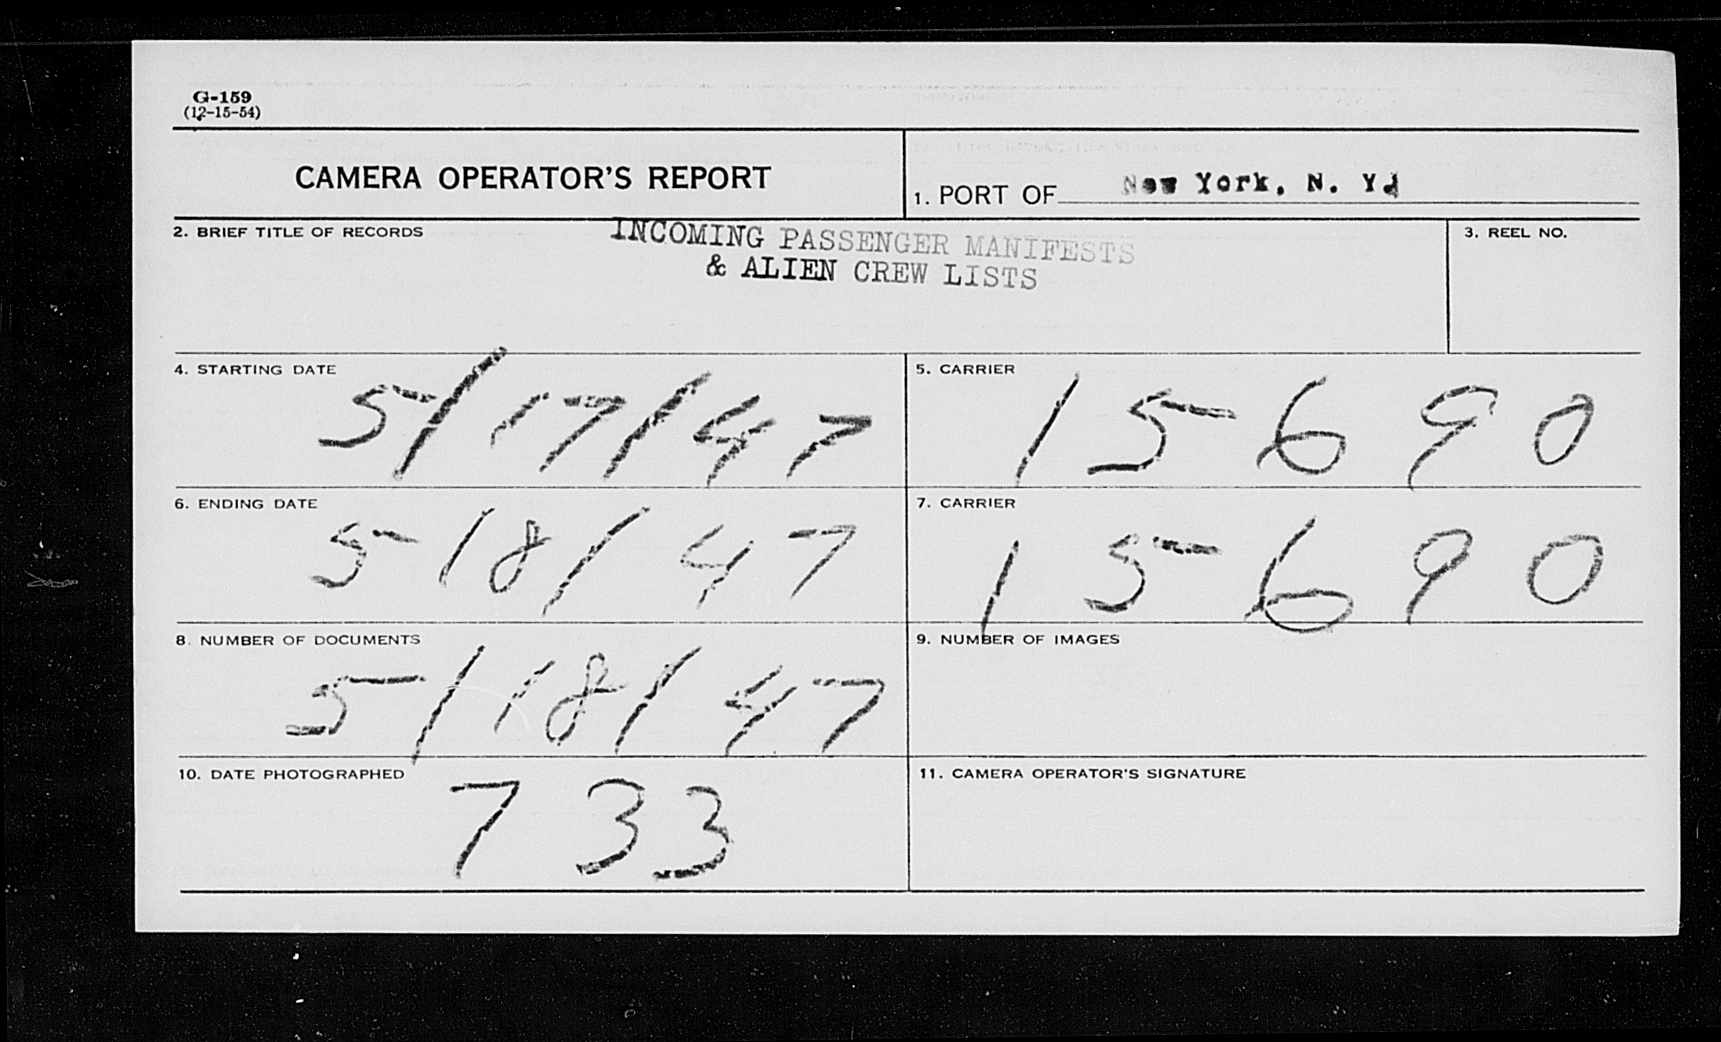 G-159
(12-15-54)
CAMERA OPERATOR'S REPORT
1. PORT OF New York, N. Y.
2. BRIEF TITLE OF RECORDS
INCOMING PASSENGER MANIFESTS
& ALIEN CREW LISTS
3. REEL NO.
4. STARTING DATE
5/17/47
5. CARRIER
15690
6. ENDING DATE
5-18/47
7. CARRIER
15690
8. NUMBER OF DOCUMENTS
5/18/47
9. NUMBER OF IMAGES
10. DATE PHOTOGRAPHED
733
11. CAMERA OPERATOR'S SIGNATURE